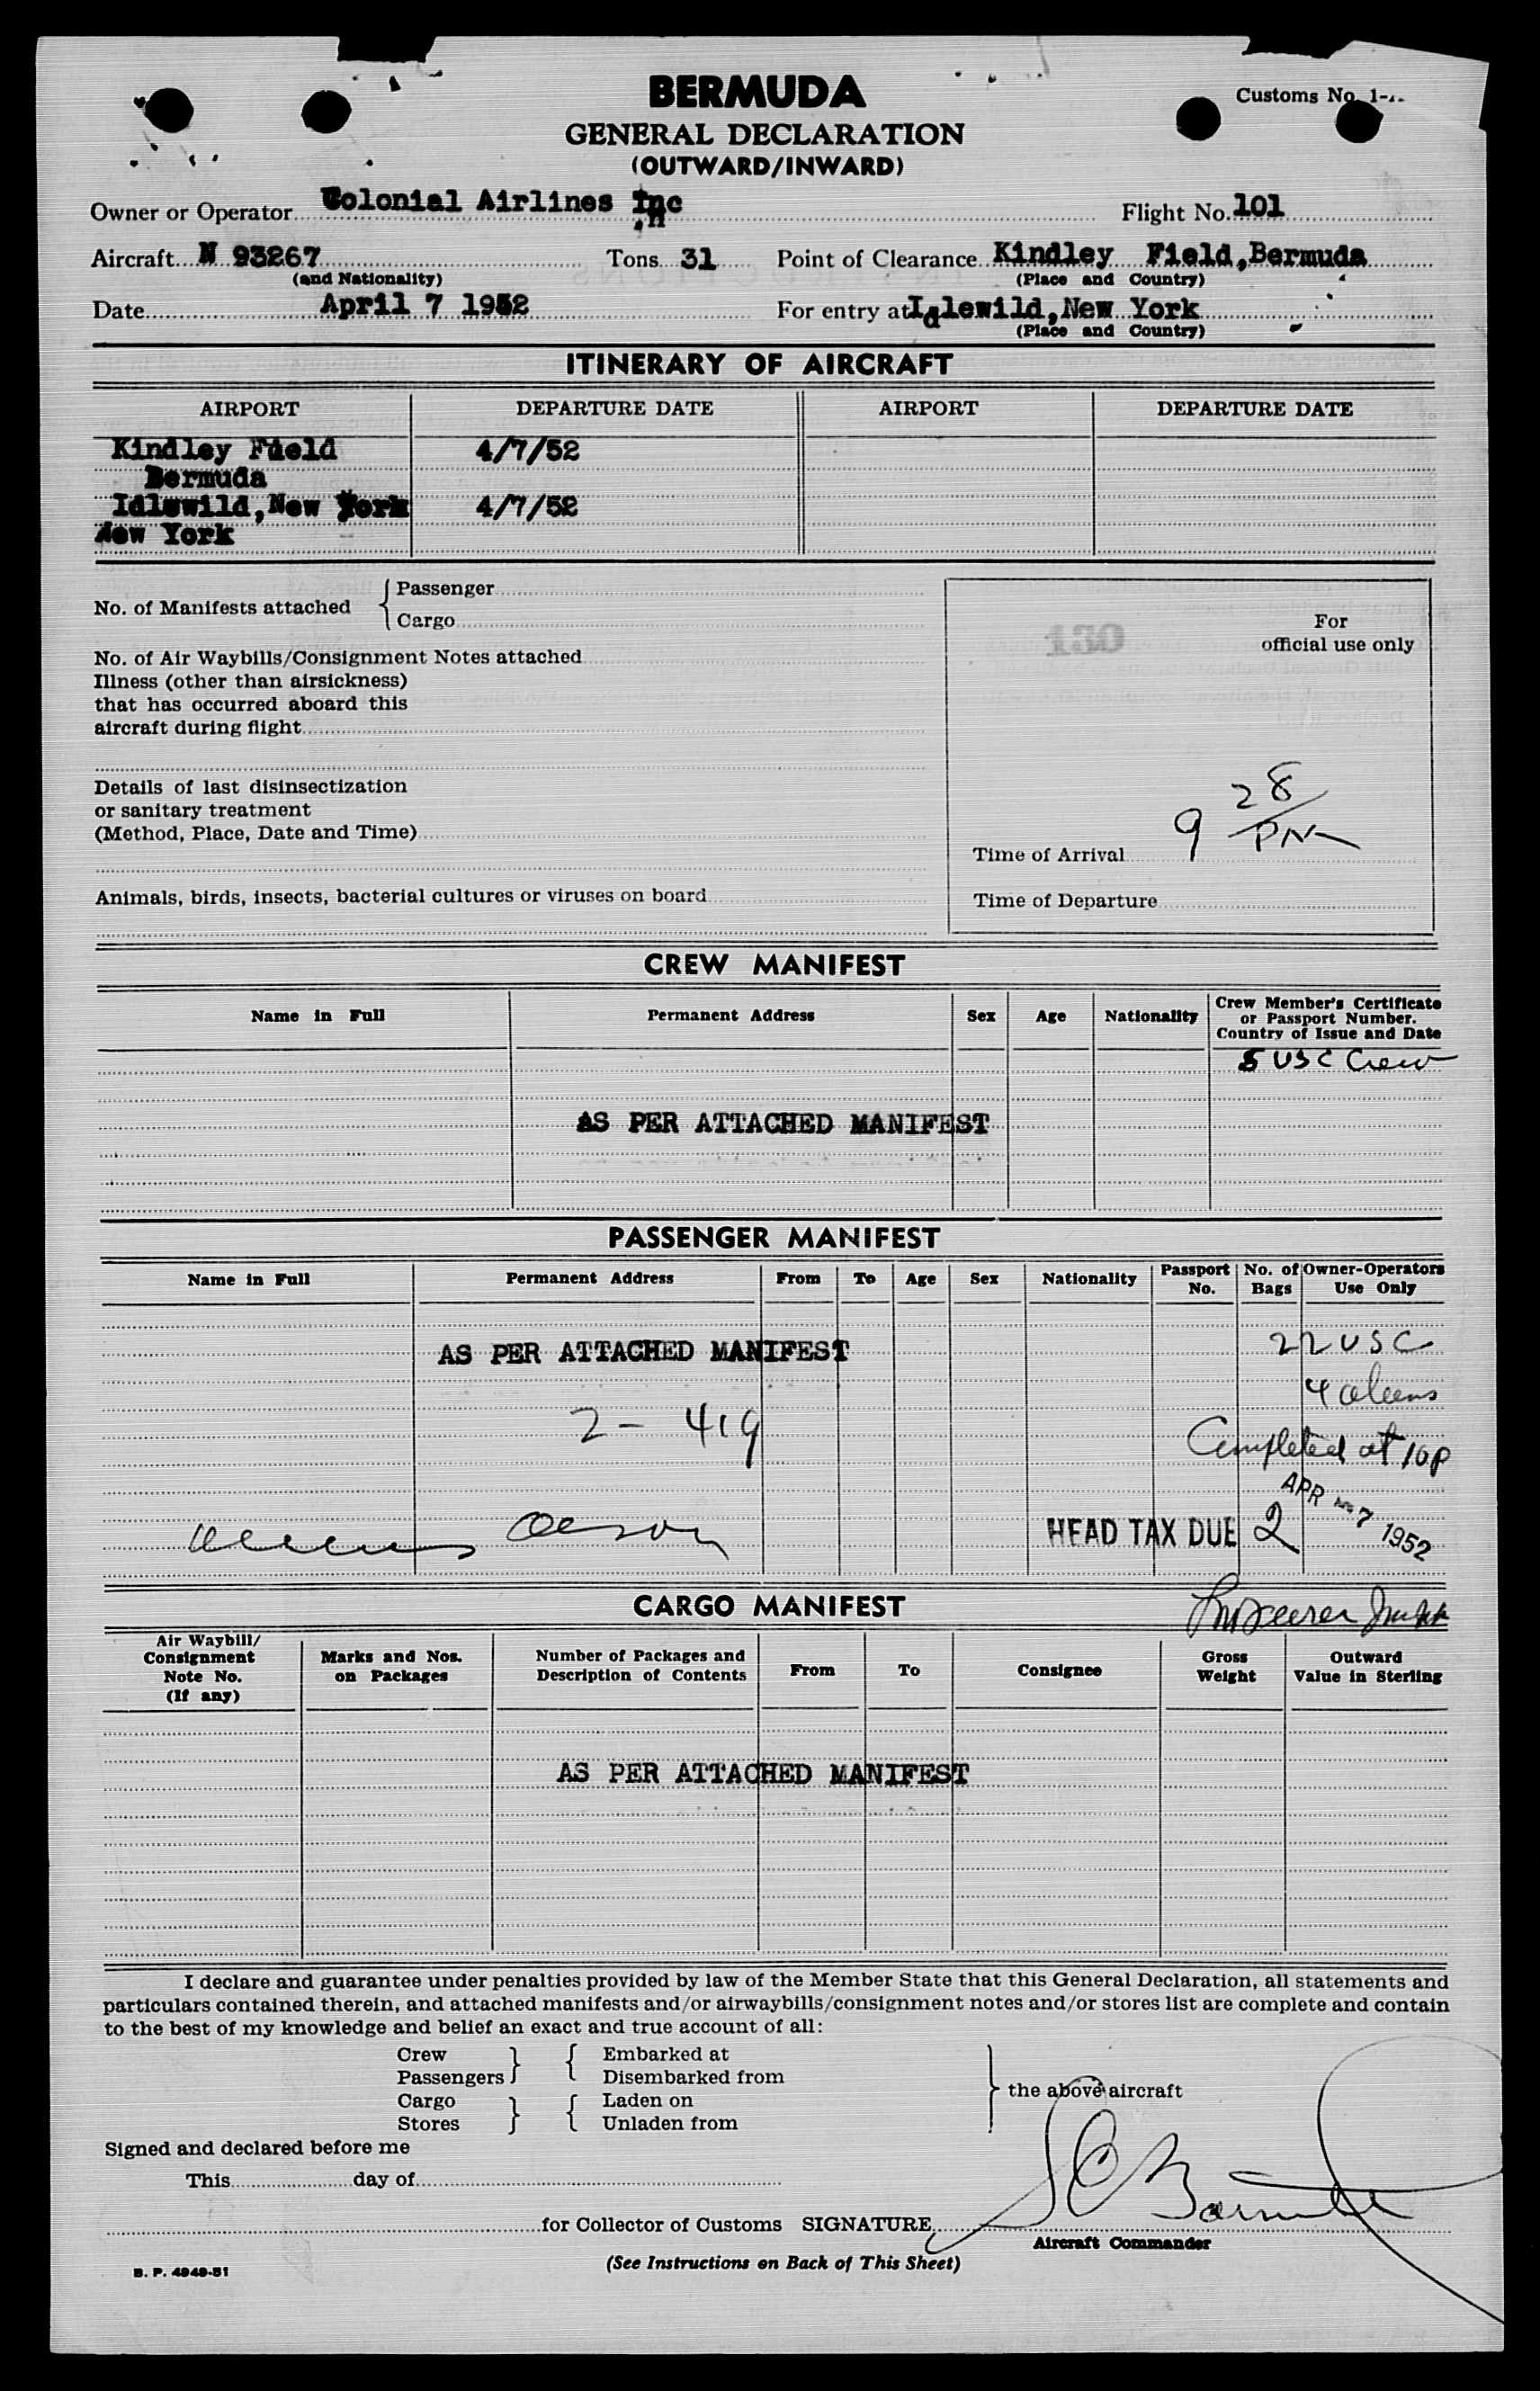 BERMUDA
Customs No. 1-
GENERAL DECLARATION
(OUTWARD/INWARD)
Owner or Operator Colonial Airlines Inc Flight No. 101
Aircraft N 93267 Tons 31 Point of Clearance Kindley Field, Bermuda
(and Nationality) (Place and Country)
Date April 7 1952 For entry at Idlewild, New York
(Place and Country)
ITINERARY OF AIRCRAFT
AIRPORT DEPARTURE DATE AIRPORT DEPARTURE DATE
Kindley Field 4/7/52
Bermuda
Idlewild, New York 4/7/52
New York
No. of Manifests attached { Passenger
Cargo
For
official use only
130
No. of Air Waybills/Consignment Notes attached
Illness (other than airsickness)
that has occurred aboard this
aircraft during flight
Details of last disinsectization
or sanitary treatment
(Method, Place, Date and Time)
Time of Arrival 9 28 PM
Animals, birds, insects, bacterial cultures or viruses on board
Time of Departure
CREW MANIFEST
Name in Full Permanent Address Sex Age Nationality Crew Member's Certificate
or Passport Number.
Country of Issue and Date
5 USC Crew
AS PER ATTACHED MANIFEST
PASSENGER MANIFEST
Name in Full Permanent Address From To Age Sex Nationality Passport No. No. of Bags Owner-Operators Use Only
AS PER ATTACHED MANIFEST
22 USC
4 aliens
2 - 419
Completed at 10p
APR -7 1952
HEAD TAX DUE 2
CARGO MANIFEST
Air Waybill/
Consignment
Note No.
(If any)
Marks and Nos.
on Packages
Number of Packages and
Description of Contents
From To Consignee
Gross
Weight
Outward
Value in Sterling
AS PER ATTACHED MANIFEST
I declare and guarantee under penalties provided by law of the Member State that this General Declaration, all statements and
particulars contained therein, and attached manifests and/or airwaybills/consignment notes and/or stores list are complete and contain
to the best of my knowledge and belief an exact and true account of all:
Crew } { Embarked at
Passengers Disembarked from
} the above aircraft
Cargo } { Laden on
Stores Unladen from
Signed and declared before me
This day of
for Collector of Customs SIGNATURE
Aircraft Commander
(See Instructions on Back of This Sheet)
B. P. 4949-51